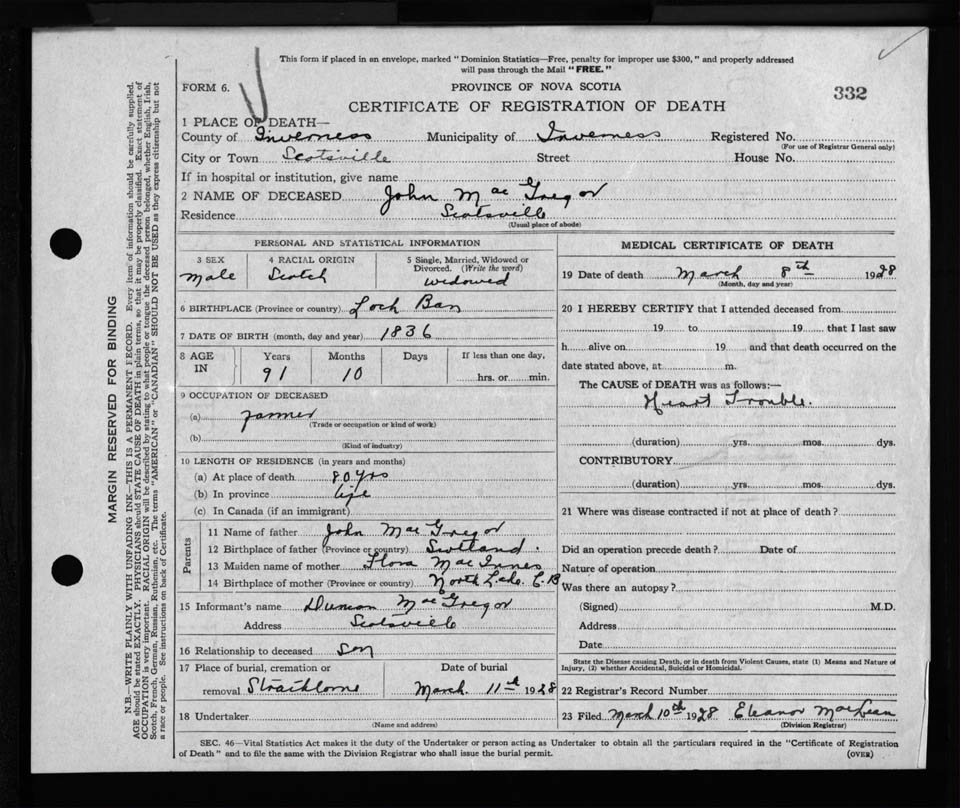 This form if placed in an envelope, marked "Dominion Statistics—Free, penalty for improper use $300," and properly addressed
will pass through the Mail "FREE."
FORM 6.
PROVINCE OF NOVA SCOTIA
332
CERTIFICATE OF REGISTRATION OF DEATH
1 PLACE OF DEATH—
County of Inverness Municipality of Inverness Registered No.
(For use of Registrar General only)
City or Town Scotsville Street House No.
If in hospital or institution, give name
2 NAME OF DECEASED John Mac Gregor
Residence Scotsville
(Usual place of abode)
PERSONAL AND STATISTICAL INFORMATION
3 SEX 4 RACIAL ORIGIN 5 Single, Married, Widowed or
Divorced. (Write the word)
Male Scotch widowed
6 BIRTHPLACE (Province or country) Loch Ban
7 DATE OF BIRTH (month, day and year) 1836
8 AGE IN Years Months Days If less than one day,
91 10 hrs. or min.
9 OCCUPATION OF DECEASED
(a) Farmer
(Trade or occupation or kind of work)
(b)
(Kind of industry)
10 LENGTH OF RESIDENCE (in years and months)
(a) At place of death 80 yrs
(b) In province life
(c) In Canada (if an immigrant)
Parents
11 Name of father John Mac Gregor
12 Birthplace of father (Province or country) Scotland.
13 Maiden name of mother Flora Mac Innes
14 Birthplace of mother (Province or country) North C. B
15 Informant's name Duncan Mac Gregor
Address Scotsville
16 Relationship to deceased Son
17 Place of burial, cremation or Date of burial
removal Strathlorne March 11th 1928
18 Undertaker
(Name and address)
MEDICAL CERTIFICATE OF DEATH
19 Date of death March 8th 1928
(Month, day and year)
20 I HEREBY CERTIFY that I attended deceased from
19 to 19 that I last saw
h alive on 19 and that death occurred on the
date stated above, at m.
The CAUSE of DEATH was as follows:—
Heart Trouble.
(duration) yrs. mos. dys.
CONTRIBUTORY
(duration) yrs. mos. dys.
21 Where was disease contracted if not at place of death?
Did an operation precede death? Date of
Nature of operation
Was there an autopsy?
(Signed) M.D.
Address
Date
State the Disease causing Death, or in death from Violent Causes, state (1) Means and Nature of
Injury, (2) whether Accidental, Suicidal or Homicidal.
22 Registrar's Record Number
23 Filed March 10th 1928 Eleanor MacLean
(Division Registrar)
SEC. 46—Vital Statistics Act makes it the duty of the Undertaker or person acting as Undertaker to obtain all the particulars required in the "Certificate of Registration
of Death" and to file the same with the Division Registrar who shall issue the burial permit.
(OVER)
MARGIN RESERVED FOR BINDING
N.B.—WRITE PLAINLY WITH UNFADING INK—THIS IS A PERMANENT RECORD. Every item of information should be carefully supplied.
AGE should be stated EXACTLY. PHYSICIANS should STATE CAUSE OF DEATH in plain terms, so that it may be properly classified. Exact statement of
OCCUPATION is very important. RACIAL ORIGIN will be described by stating to what people or tongue the deceased person belonged, whether English, Irish,
Scotch, French, German, Russian, Ruthenian, etc. The terms "AMERICAN" or "CANADIAN" SHOULD NOT BE USED as they express citizenship but not
a race or people. See instructions on back of Certificate.